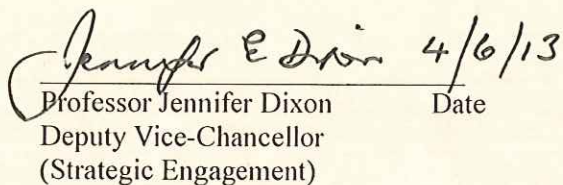 Jennifer E Dixon 4/6/13
Professor Jennifer Dixon Date
Deputy Vice-Chancellor
(Strategic Engagement)